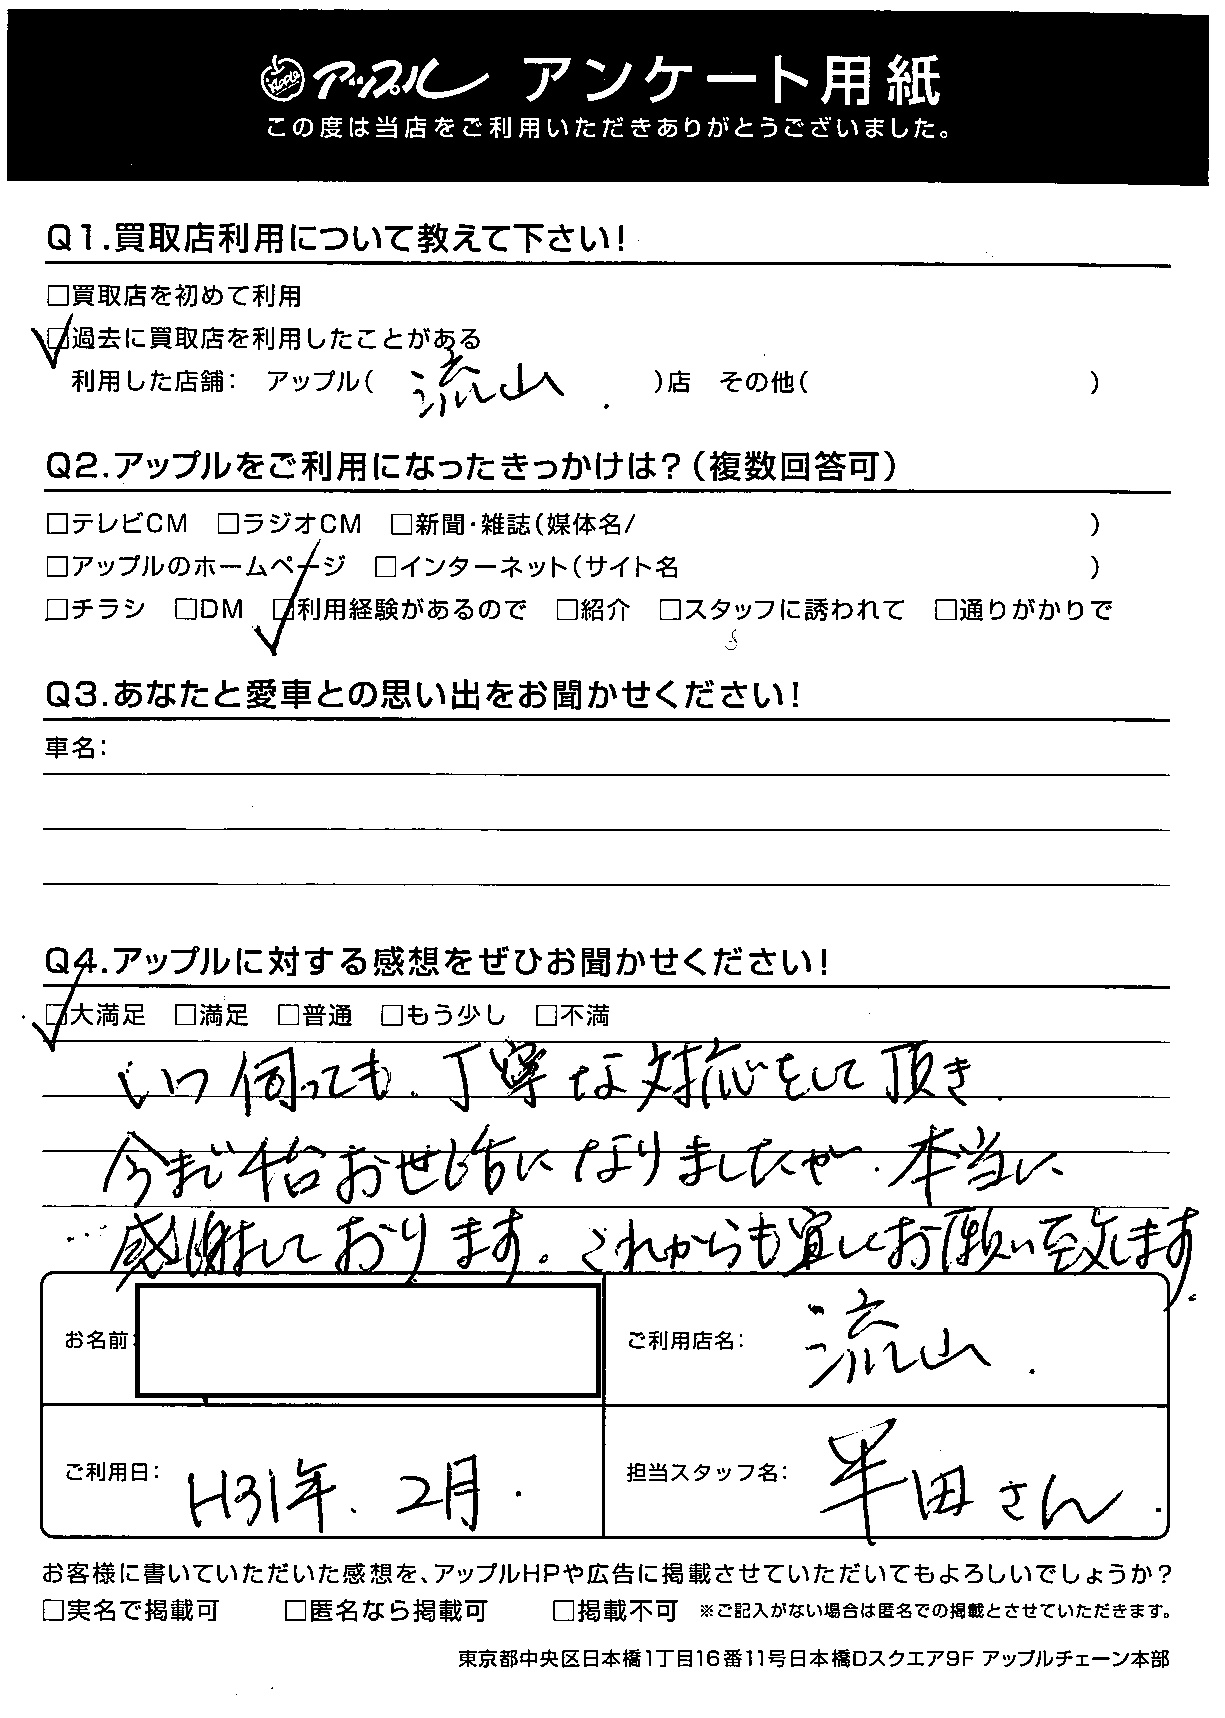 Apple アップル アンケート用紙
この度は当店をご利用いただきありがとうございました。
Q1.買取店利用について教えて下さい!
□買取店を初めて利用
☑過去に買取店を利用したことがある
利用した店舗: アップル( 流山 )店 その他( )
Q2.アップルをご利用になったきっかけは?(複数回答可)
□テレビCM □ラジオCM □新聞・雑誌(媒体名/ )
□アップルのホームページ □インターネット(サイト名 )
□チラシ □DM ☑利用経験があるので □紹介 □スタッフに誘われて □通りがかりで
Q3.あなたと愛車との思い出をお聞かせください!
車名:
Q4.アップルに対する感想をぜひお聞かせください!
☑大満足 □満足 □普通 □もう少し □不満
いつ伺っても、丁寧な対応をして頂き、
今まで4台お世話になりましたが、本当に
感謝しております。これからも宜しくお願い致します。
お名前: ご利用店名: 流山
ご利用日: H31年、2月 担当スタッフ名: 半田さん
お客様に書いていただいた感想を、アップルHPや広告に掲載させていただいてもよろしいでしょうか?
□実名で掲載可 □匿名なら掲載可 □掲載不可 ※ご記入がない場合は匿名での掲載とさせていただきます。
東京都中央区日本橋1丁目16番11号日本橋Dスクエア9F アップルチェーン本部